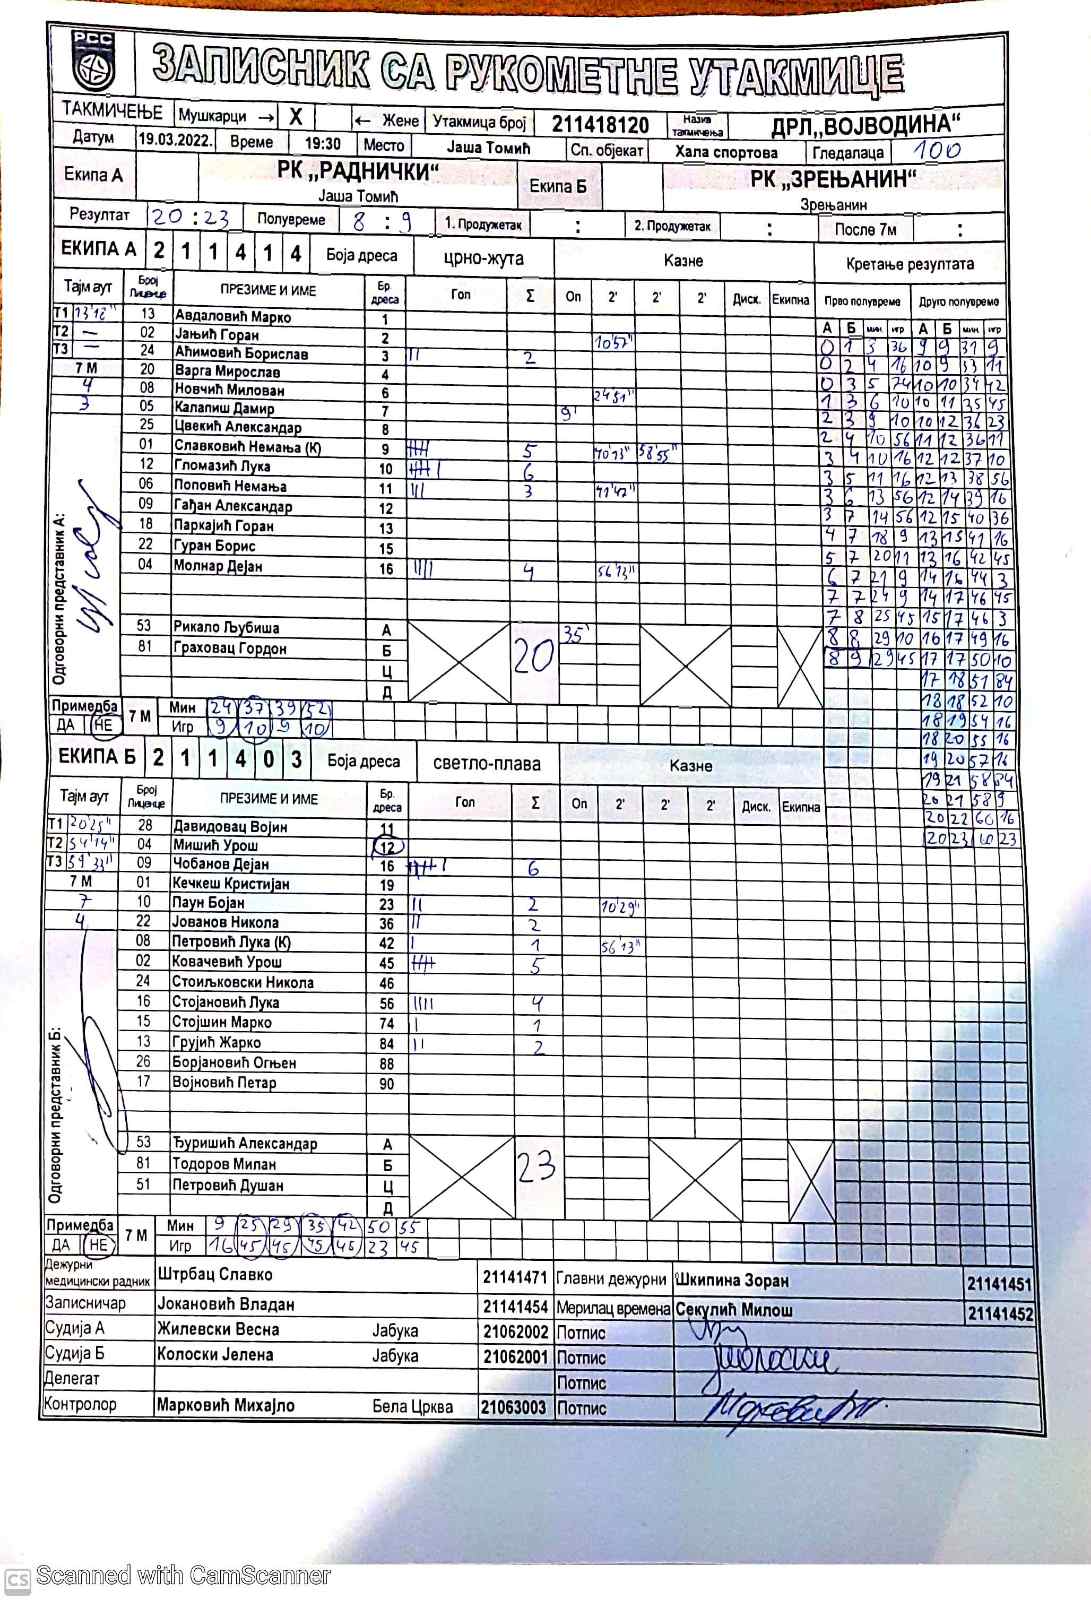 РСС
ЗАПИСНИК СА РУКОМЕТНЕ УТАКМИЦЕ
ТАКМИЧЕЊЕ Мушкарци → X ← Жене Утакмица број 211418120 Назив такмичења ДРЛ„ВОЈВОДИНА“
Датум 19.03.2022. Време 19:30 Место Јаша Томић Сп. објекат Хала спортова Гледалаца 100
Екипа А РК „РАДНИЧКИ“ Јаша Томић Екипа Б РК „ЗРЕЊАНИН“ Зрењанин
Резултат 20 : 23 Полувреме 8 : 9 1. Продужетак : 2. Продужетак : После 7м :
ЕКИПА А 2 1 1 4 1 4 Боја дреса црно-жута Казне Кретање резултата
Тајм аут Број Лиценце ПРЕЗИМЕ И ИМЕ Бр дреса Гол Σ Оп 2' 2' 2' Диск. Екипна Прво полувреме Друго полувреме
А Б мин игр А Б мин игр
Т1 13'18" 13 Авдаловић Марко 1
Т2 — 02 Јањић Горан 2 10'57"
Т3 — 24 Аћимовић Борислав 3 II 2
7 М 20 Варга Мирослав 4
4 08 Новчић Милован 6 24'51"
3 05 Калапиш Дамир 7 9'
25 Цвекић Александар 8
01 Славковић Немања (К) 9 IIII 5 40'13" 58'55"
12 Гломазић Лука 10 IIII I 6
06 Поповић Немања 11 III 3 41'47"
09 Гађан Александар 12
18 Паркајић Горан 13
22 Гуран Борис 15
04 Молнар Дејан 16 IIII 4 56'13"
Одговорни представник А:
53 Рикало Љубиша А 20 35'
81 Граховац Гордон Б
Ц
Д
0 1 3 36 9 9 31 9
0 2 4 16 10 9 33 11
0 3 5 74 10 10 34 42
1 3 6 10 10 11 35 45
2 3 9 10 10 12 36 23
2 4 10 56 11 12 36 11
3 4 10 16 12 12 37 10
3 5 11 16 12 13 38 56
3 6 13 56 12 14 39 16
3 7 14 56 12 15 40 36
4 7 18 9 13 15 41 16
5 7 20 11 13 16 42 45
6 7 21 9 14 16 44 3
7 7 24 9 14 17 46 45
7 8 25 45 15 17 46 3
8 8 29 10 16 17 49 16
8 9 29 45 17 17 50 10
17 18 51 84
18 18 52 10
18 19 54 16
18 20 55 16
19 20 57 16
19 21 58 84
20 21 58 9
20 22 60 16
20 23 60 23
Примедба ДА НЕ 7 М Мин 24 37 39 52
Игр 9 10 9 10
ЕКИПА Б 2 1 1 4 0 3 Боја дреса светло-плава Казне
Тајм аут Број Лиценце ПРЕЗИМЕ И ИМЕ Бр. дреса Гол Σ Оп 2' 2' 2' Диск. Екипна
Т1 20'25" 28 Давидовац Војин 11
Т2 54'14" 04 Мишић Урош 12
Т3 59'33" 09 Чобанов Дејан 16 IIII I 6
7 М 01 Кечкеш Кристијан 19
7 10 Паун Бојан 23 II 2 10'29"
4 22 Јованов Никола 36 II 2
08 Петровић Лука (К) 42 I 1 56'13"
02 Ковачевић Урош 45 IIII 5
24 Стоиљковски Никола 46
16 Стојановић Лука 56 IIII 4
15 Стојшин Марко 74 I 1
13 Грујић Жарко 84 II 2
26 Борјановић Огњен 88
17 Војновић Петар 90
Одговорни представник Б:
53 Ђуришић Александар А 23
81 Тодоров Милан Б
51 Петровић Душан Ц
Д
Примедба ДА НЕ 7 М Мин 9 25 29 35 42 50 55
Игр 16 45 45 45 45 23 45
Дежурни медицински радник Штрбац Славко 21141471 Главни дежурни Шкипина Зоран 21141451
Записничар Јокановић Владан 21141454 Мерилац времена Секулић Милош 21141452
Судија А Жилевски Весна Јабука 21062002 Потпис
Судија Б Колоски Јелена Јабука 21062001 Потпис
Делегат Потпис
Контролор Марковић Михајло Бела Црква 21063003 Потпис
CS Scanned with CamScanner